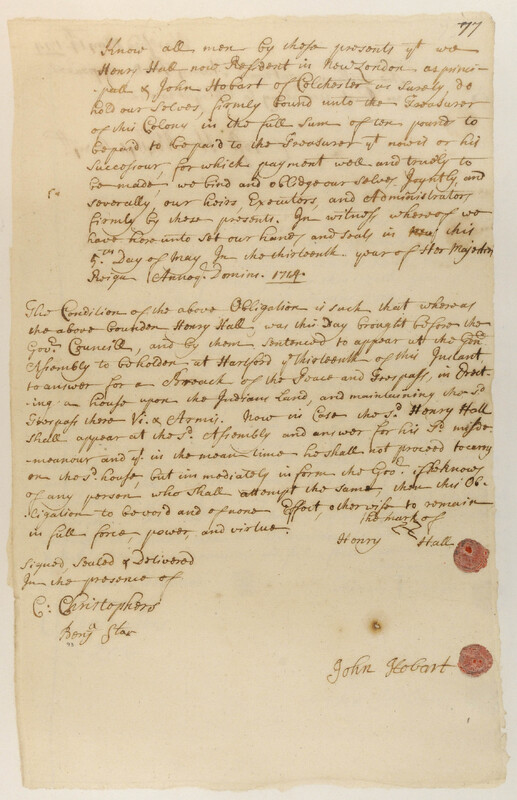 77
Know all men by these presents yt we
Henry Hall now Resident in New London as princi-
pall & John Hobart of Colchester as Surety, do
hold our Selves, firmly bound unto the Treasurer
of this Colony in the full Sum of ten pounds to
be paid to be paid to the Treasurer yt now is or his
Successour, for which payment well and truely to
be made, we bind and oblidge our Selves, Joyntly, and
Severally, our heirs, Executors, and Administrators
firmly by these presents. In witness whereof we
have here unto Set our hands and Seals in this
5th Day of May In the thirteenth year of Her Majesties
Reign Annoq. Domini. 1714.
The Condition of the above Obligation is such that whereas
the above bounden Henry Hall, was this Day brought before the
Govr. Councill, and by them Sentenced to appear at the Genll
Assembly to be holden at Hartford ye thirteenth of this Instant
to answer for a Breach of the Peace and Trespass, in Erect-
ing a house upon the Indians Land, and maintaining the Sd.
Tresspass there Vi. & Armis. Now in Case the Sd. Henry Hall
Shall appear at the Sd. Assembly and answer for his Sd. misde-
meanour and yt. in the mean time he shall not proceed to carry
on the Sd. house but immediately inform the Govr. if he knows
of any person who Shall attempt the Same, then this Ob-
ligation to be void and of none Effect, otherwise to remain
in full force, power, and virtue.
The mark of
Henry Hall
Signed, Sealed & Delivered
In the presence of
C: Christophers
Benja Star
John Hobart